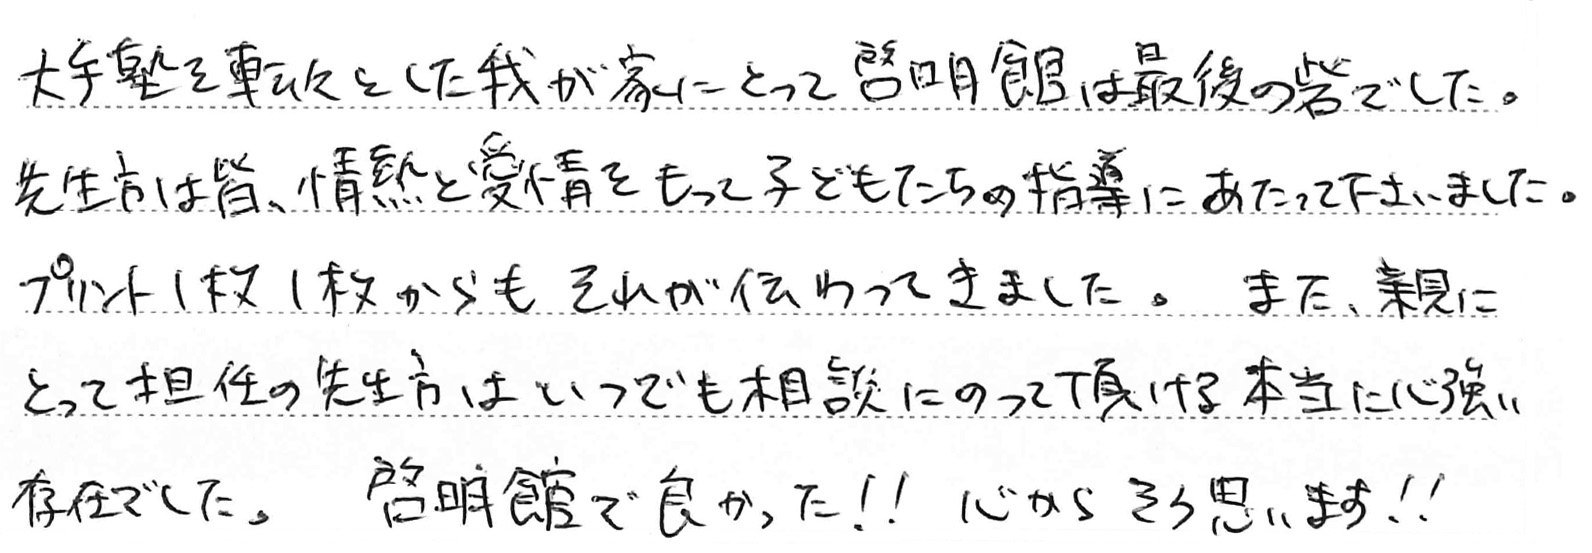 大手塾を転々とした我が家にとって啓明館は最後の砦でした。
先生方は皆、情熱と愛情をもって子どもたちの指導にあたって下さいました。
プリント1枚1枚からもそれが伝わってきました。 また、親に
とって担任の先生方はいつでも相談にのって頂ける本当に心強い
存在でした。 啓明館で良かった!! 心からそう思います!!